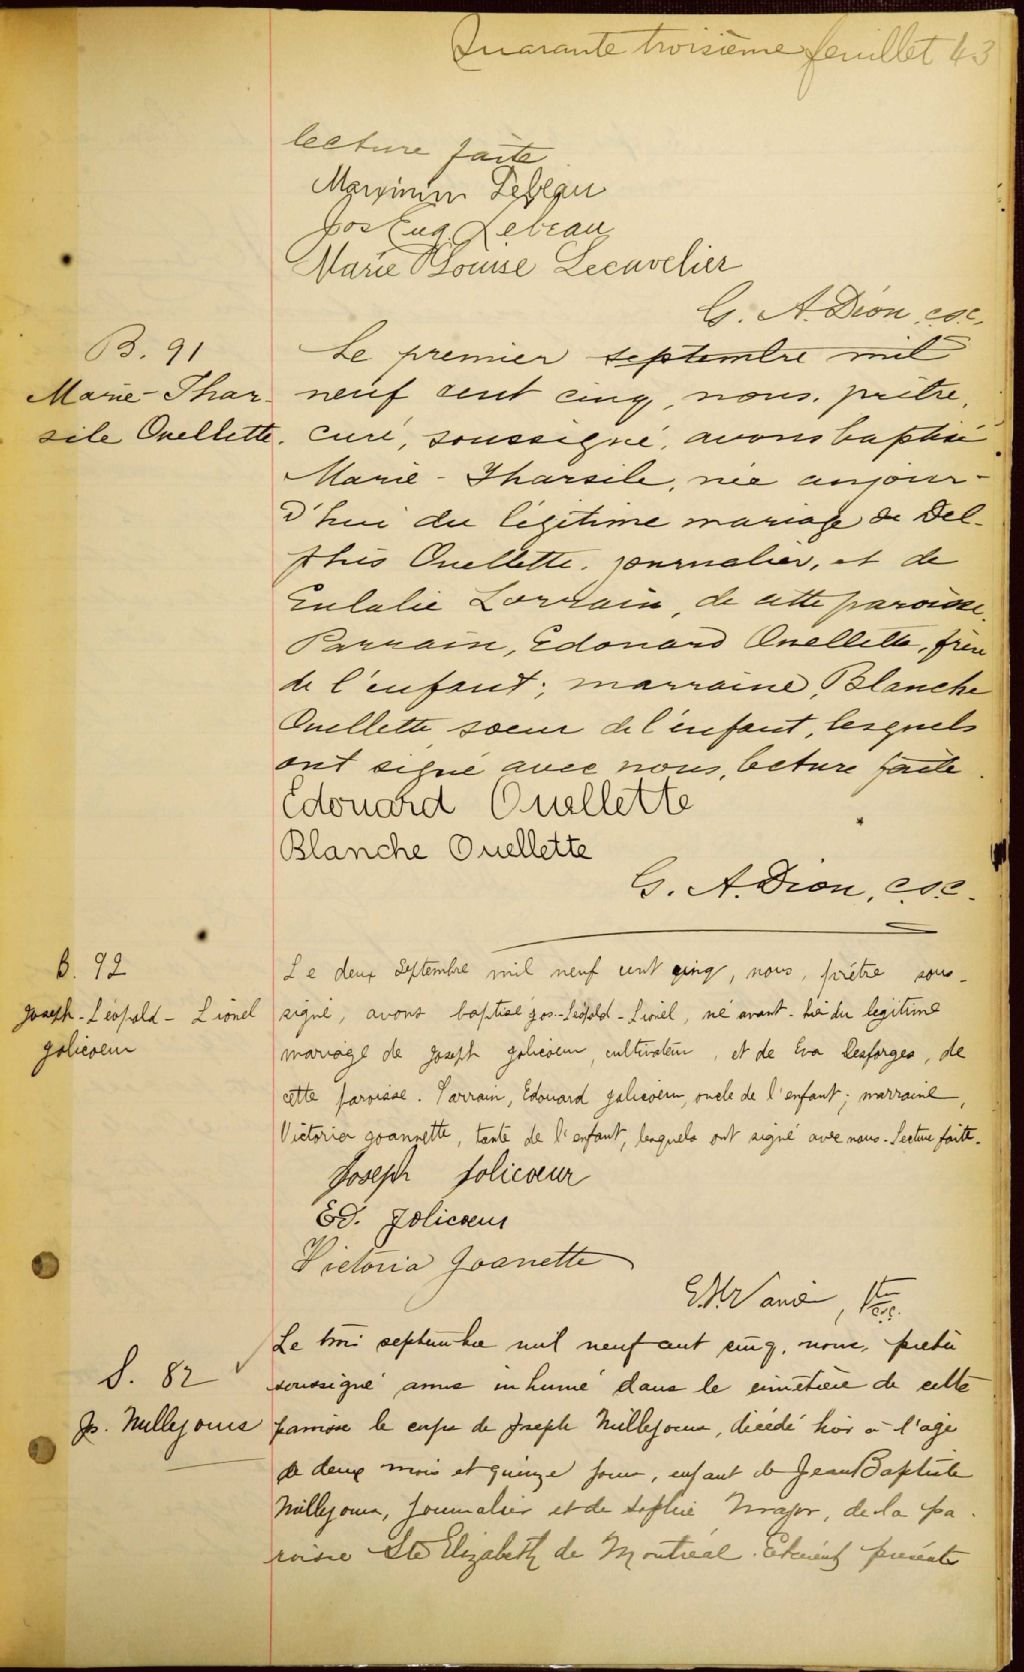 Quarante troisième feuillet 43
lecture faite
Maximin Lebeau
Jos Eug. Lebeau
Marie Louise Lecavelier
G. A. Dion, c.s.c.
B. 91
Marie-Thar-
sile Ouellette.
Le premier septembre mil
neuf cent cinq, nous, prêtre,
curé, soussigné, avons baptisé
Marie-Tharsile, née aujour-
d'hui du légitime mariage de Del-
phis Ouellette, journalier, et de
Eulalie Lorrain, de cette paroisse.
Parrain, Edouard Ouellette, frère
de l'enfant; marraine, Blanche
Ouellette soeur de l'enfant, lesquels
ont signé avec nous, lecture faite.
Edouard Ouellette
Blanche Ouellette
G. A. Dion, c.s.c.
B. 92
Joseph-Léopold-Lionel
Jolicoeur
Le deux Septembre mil neuf cent cinq, nous, prêtre sous-
signé, avons baptisé Jos-Léopold-Lionel, né avant-hier du legitime
mariage de Joseph Jolicoeur, cultivateur, et de Eva Desforges, de
cette paroisse. Parrain, Edouard Jolicoeur, oncle de l'enfant; marraine,
Victoria Joannette, tante de l'enfant, lesquels ont signé avec nous. Lecture faite.
Joseph Jolicoeur
Ed. Jolicoeur
Victoria Joanette
Vanier, Ptre
c.s.c.
S. 82
Js. Millejours
Le trois septembre mil neuf cent cinq, nous, prêtre
soussigné avons inhumé dans le cimetière de cette
paroisse le corps de Joseph Millejours, décédé hier à l'age
de deux mois et quinze jours, enfant de Jean Baptiste
Millejours, journalier et de Sophie Major, de la pa-
roisse Ste Elizabeth de Montréal. Etaient présents